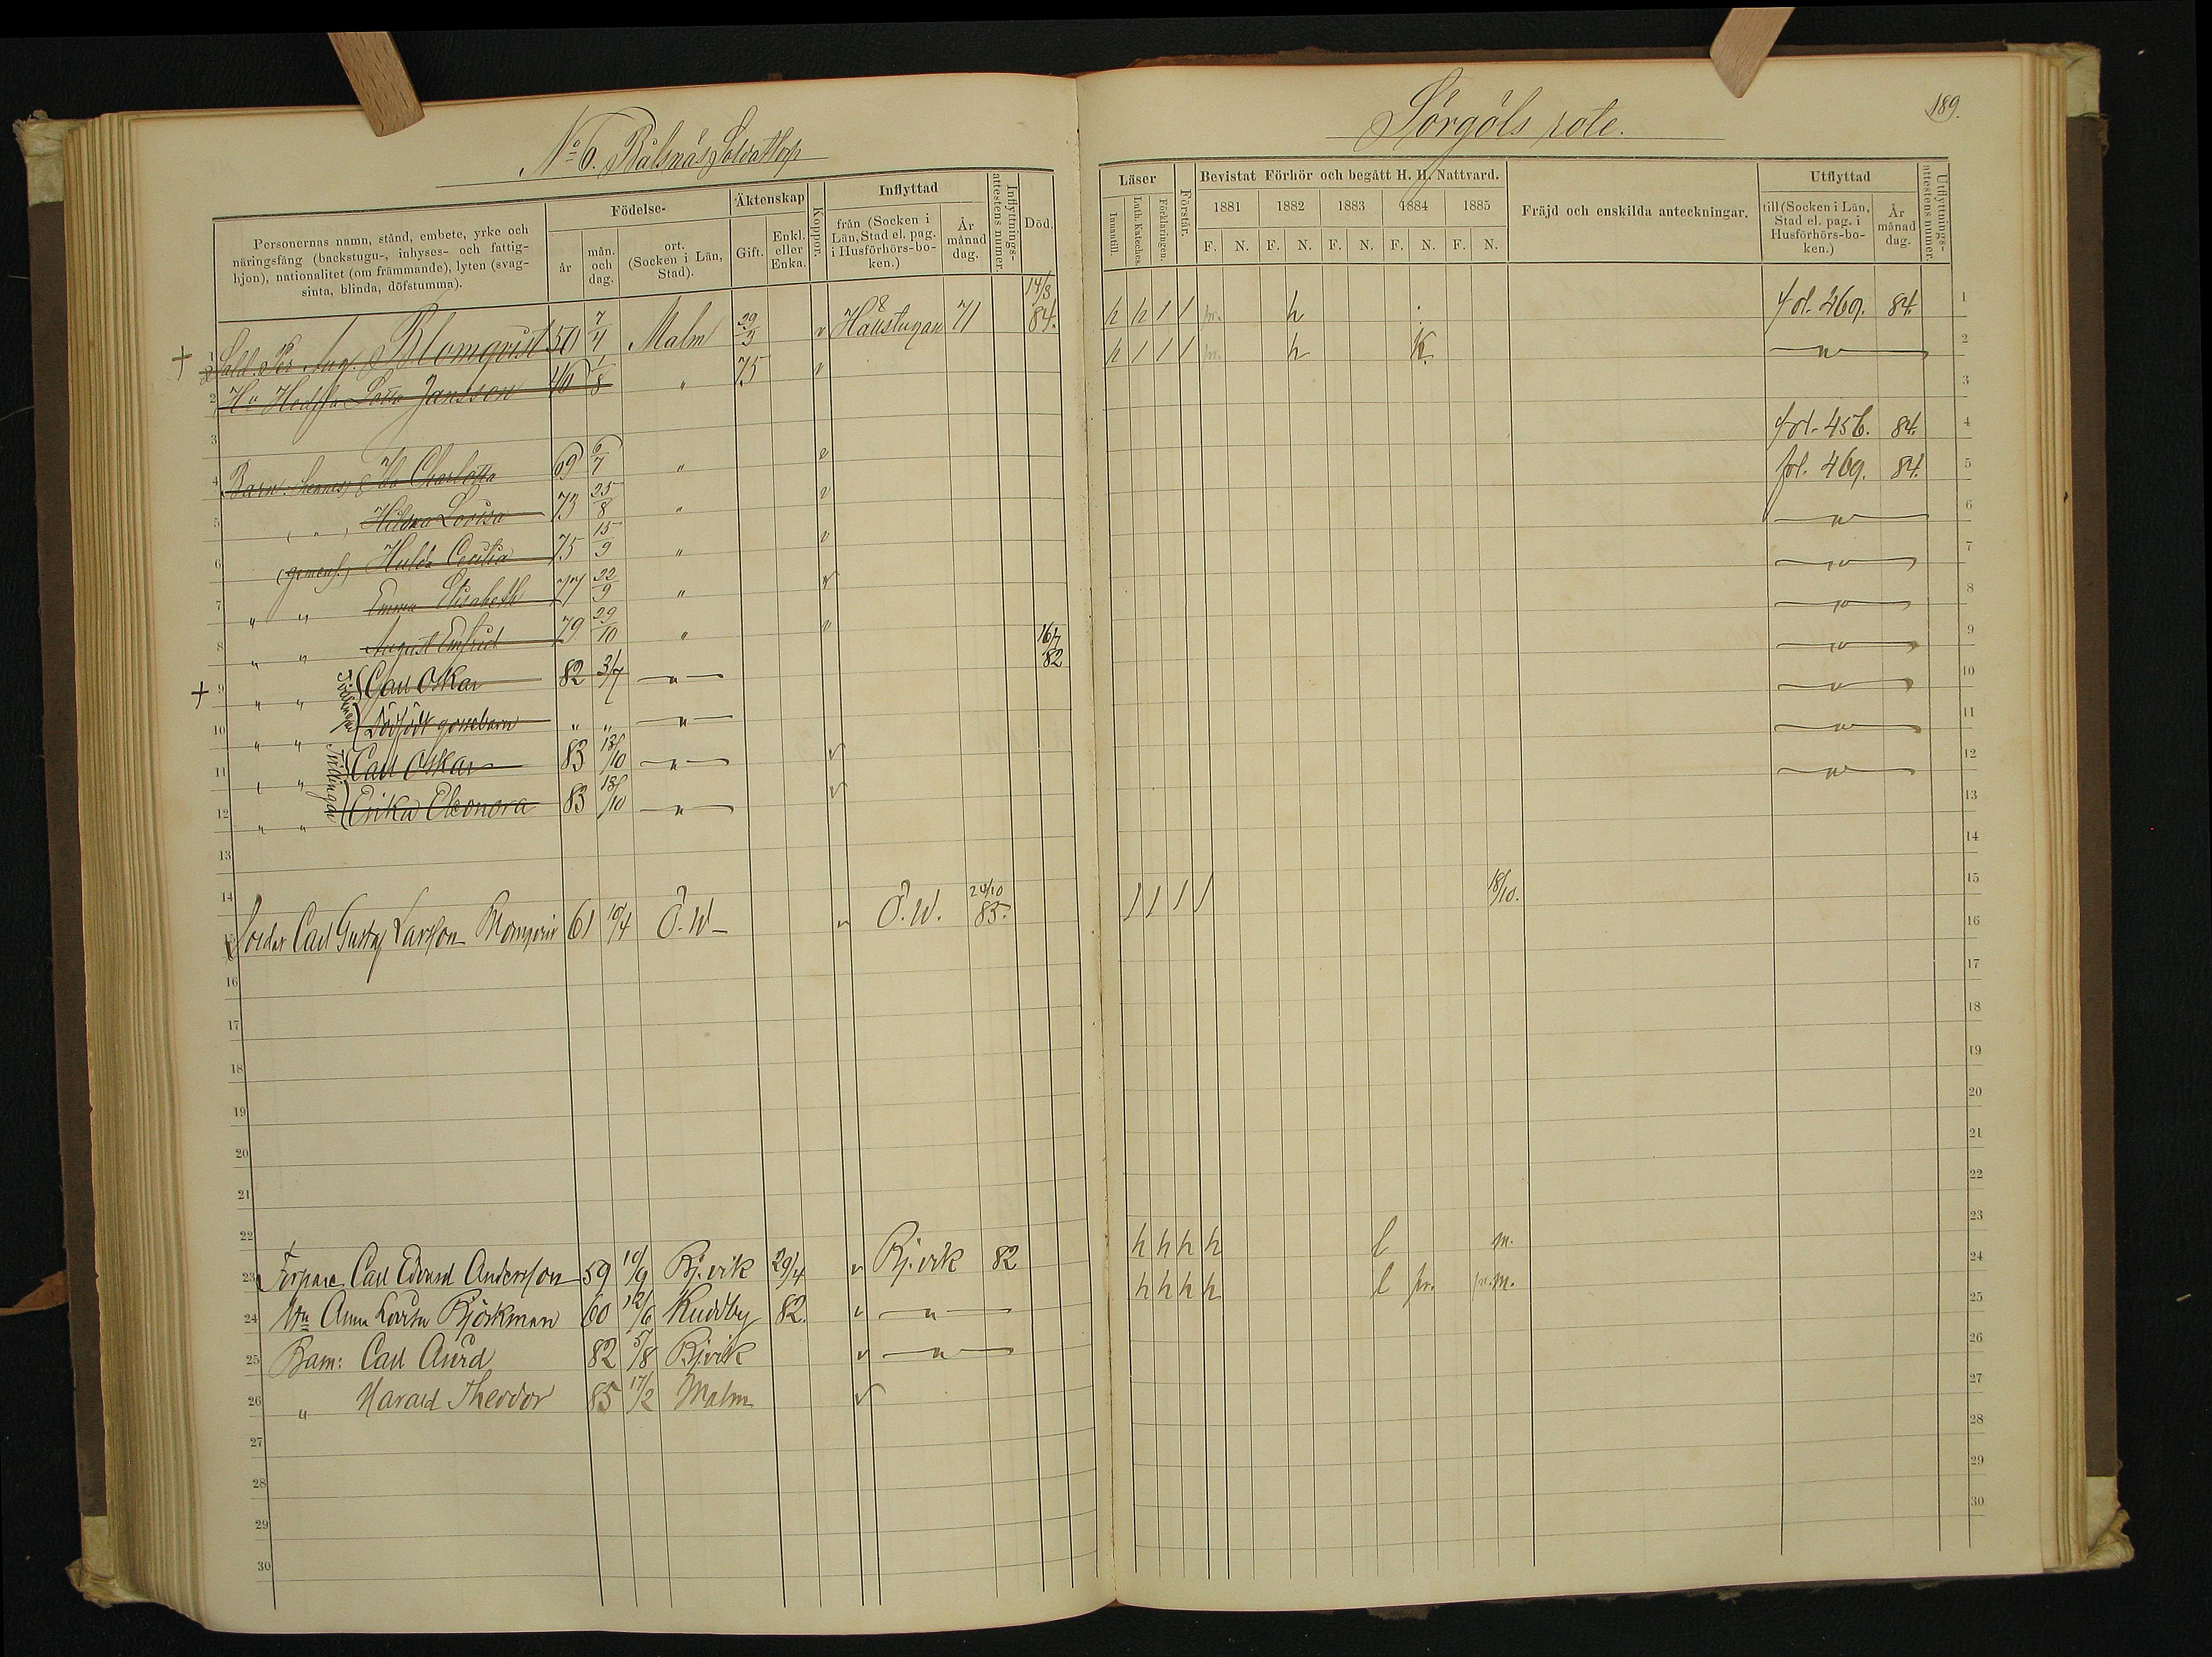 No 6. Rälsnäs Soldattorp
Sörgöls rote.
189.
Personernas namn, stånd, embete, yrke och näringsfång (backstugu-, inhyses- och fattighjon), nationalitet (om främmande), lyten (svagsinta, blinda, döfstumma).
Födelse-
år
mån. och dag.
ort. (Socken i Län, Stad).
Äktenskap
Gift.
Enkl. eller Enka.
Koppor.
Inflyttad
från (Socken i Län, Stad el. pag. i Husförhörs-boken.)
År månad dag.
Inflyttnings-attestens numer.
Död.
Läser
Innantill.
Luth. Kateches.
Förklaringen.
Förstår.
Bevistat Förhör och begått H. H. Nattvard.
1881 1882 1883 1884 1885
F. N. F. N. F. N. F. N. F. N.
Fräjd och enskilda anteckningar.
Utflyttad
till (Socken i Län, Stad el. pag. i Husförhörs-boken.)
År månad dag.
Utflyttnings-attestens numer.
1 Sold. Per Aug. Blomqvist 50 7/4 Malm 29/3 v 71 14/3 84. h h 1 1 h fol. 469. 84. 1
2 Hu Hedda Jansson 1/8 " 75 v h 1 1 1 h K. " 2
3 3
4 Barn: Charlotta 69 6/7 " v fol. 456. 84. 4
5 " Hilma Lovisa 73 25/8 " v fol. 469. 84. 5
6 (gemens.) Hulda Cecilia 75 15/9 " v " 6
7 " " Emma Elisabeth 77 22/9 " v " 7
8 " " August Emfrid 79 29/10 " v " 8
9 " " Tvillingar Carl Oskar 82 3/7 " 16/7 82 " 9
10 " " Dödfödt gossebarn " " " " 10
11 " " Tvillingar Carl Oskar 83 13/10 " v " 11
12 " " Erika Eleonora 83 13/10 " v " 12
13 13
14 14
15 Soldat Carl Gustaf Larsson Blomqvist 61 10/4 Ö. W. v Ö. W. 24/10 85. 1 1 1 1 18/10. 15
16 16
17 17
18 18
19 19
20 20
21 21
22 22
23 Torpare Carl Edvard Andersson 59 10/9 Bj.vik 29/4 v Bj.vik 82 h h h h l m. 23
24 Hu Anna Lovisa Björkman 60 12/6 Kuddby 82. v " h h h h l pr. pr. m. 24
25 Barn: Carl 82 5/8 Bj.vik v " 25
26 " Harald Theodor 85 17/2 Malm v 26
27 27
28 28
29 29
30 30